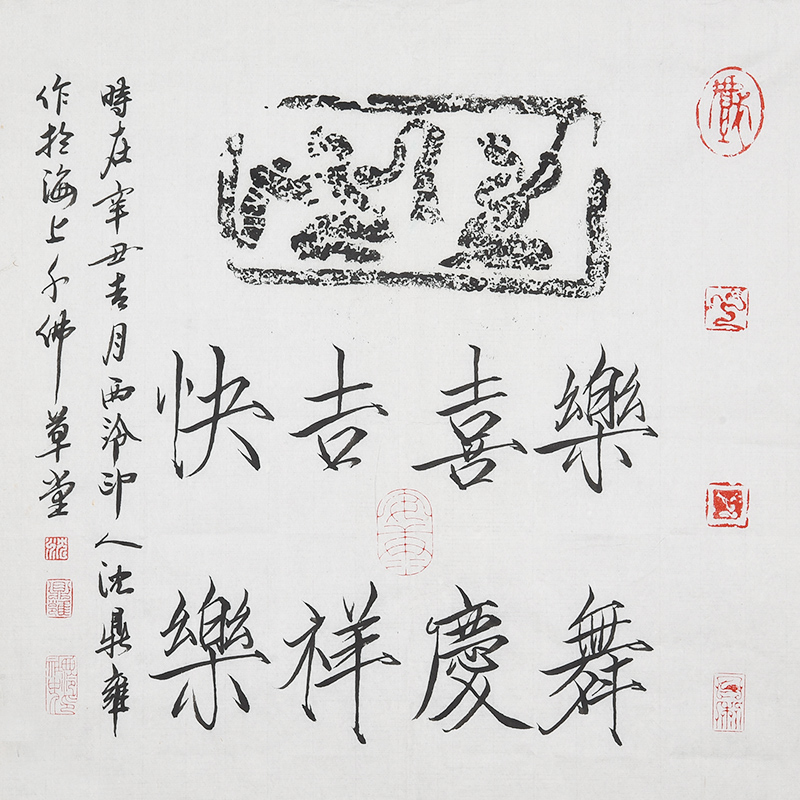 樂舞
喜慶
吉祥
快樂
時在辛丑吉月西泠印人沈鼎雍
作於海上千佛草堂